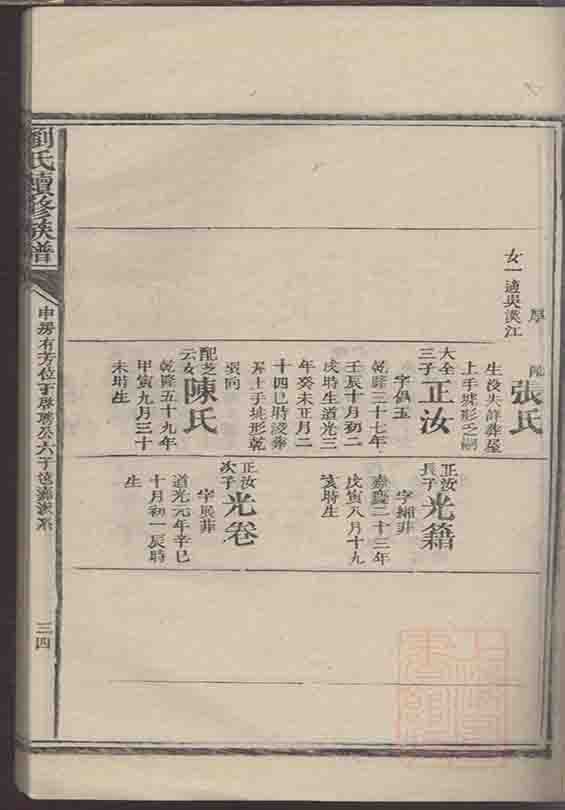 劉氏續修族譜
申房有芳位下啓聘公六子遠嘉派系
三四
女一適吳漢江
厚
配張氏
生没失詳葬屋
上手墈形乙嗣
大全三子正汝
字錫玉
乾隆三十七年
壬辰十月初二
戌時生道光三
年癸未正月二
十四巳時没葬
屋上手墈形乾
巽向
配芝云女陳氏
乾隆五十九年
甲寅九月三十
未時生
正汝長子光籍
字緗菲
嘉慶二十三年
戊寅八月十九
亥時生
正汝次子光卷
字展菲
道光元年辛巳
十月初一辰時
生